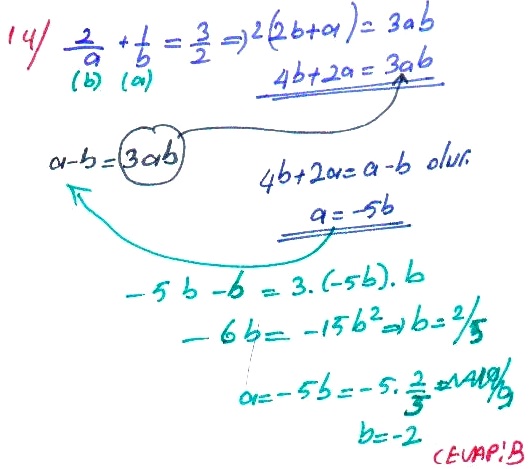 14/ 2/a + 1/b = 3/2 ⇒ 2(2b+a) = 3ab
(b) (a)
4b+2a = 3ab
a-b = 3ab
4b+2a = a-b olur.
a = -5b
-5b -b = 3.(-5b).b
-6b = -15b² ⇒ b = 2/5
a = -5b = -5. 2/5 =
b = -2
CEVAP: B